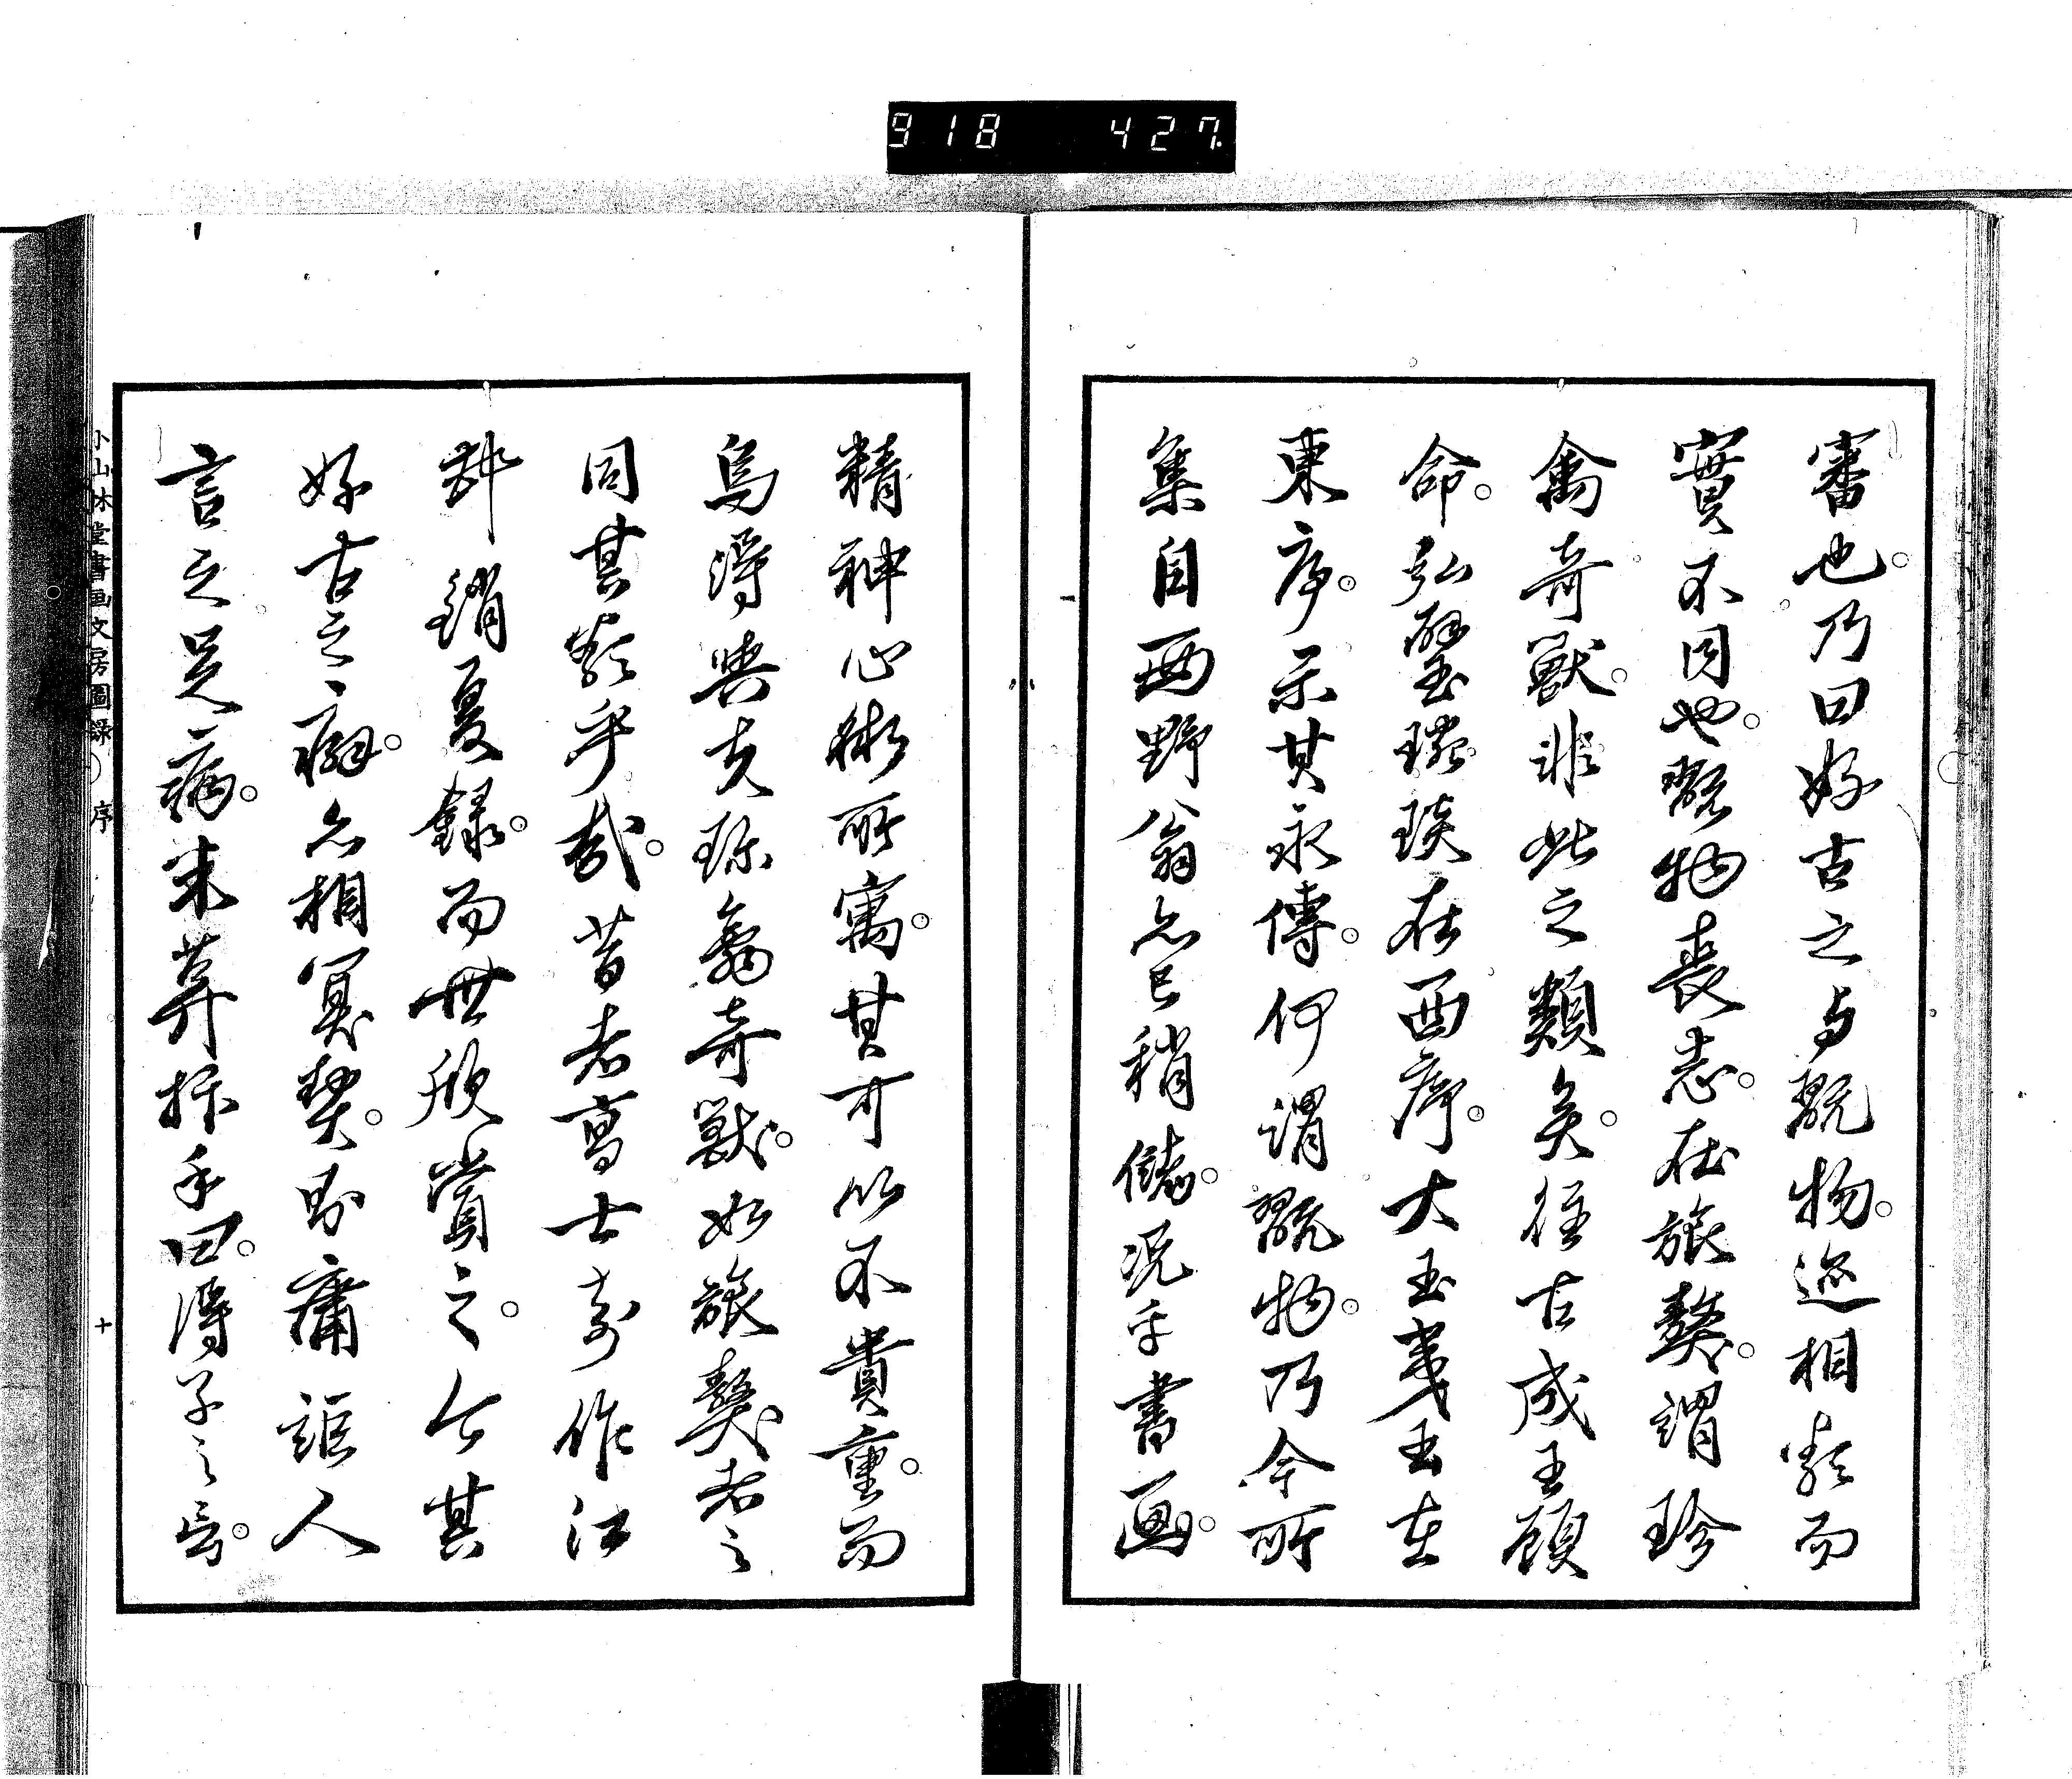 918 427.
審也。乃曰好古之与翫物。迹相類而
實不同也。翫物喪志。在旅獒。謂珍
禽奇獸。非此之類矣。往古成王顧
命。弘璧琬琰在西序。大玉夷玉在
東序。示其永傳。何謂翫物。乃今所
集自西野翁亦已稍儲。况乎書画。
精神心術所寓。其可以不貴重。而
烏得与夫珍禽奇獸。如旅獒者之
同其類乎哉。昔者高士奇作江
邨銷夏録。而世欣賞之。今其
好古之癖。亦相冥契。即庸詎人
言之足病。朱葬抃手曰。得子之言。
小山林堂書画文房圖録 序 十